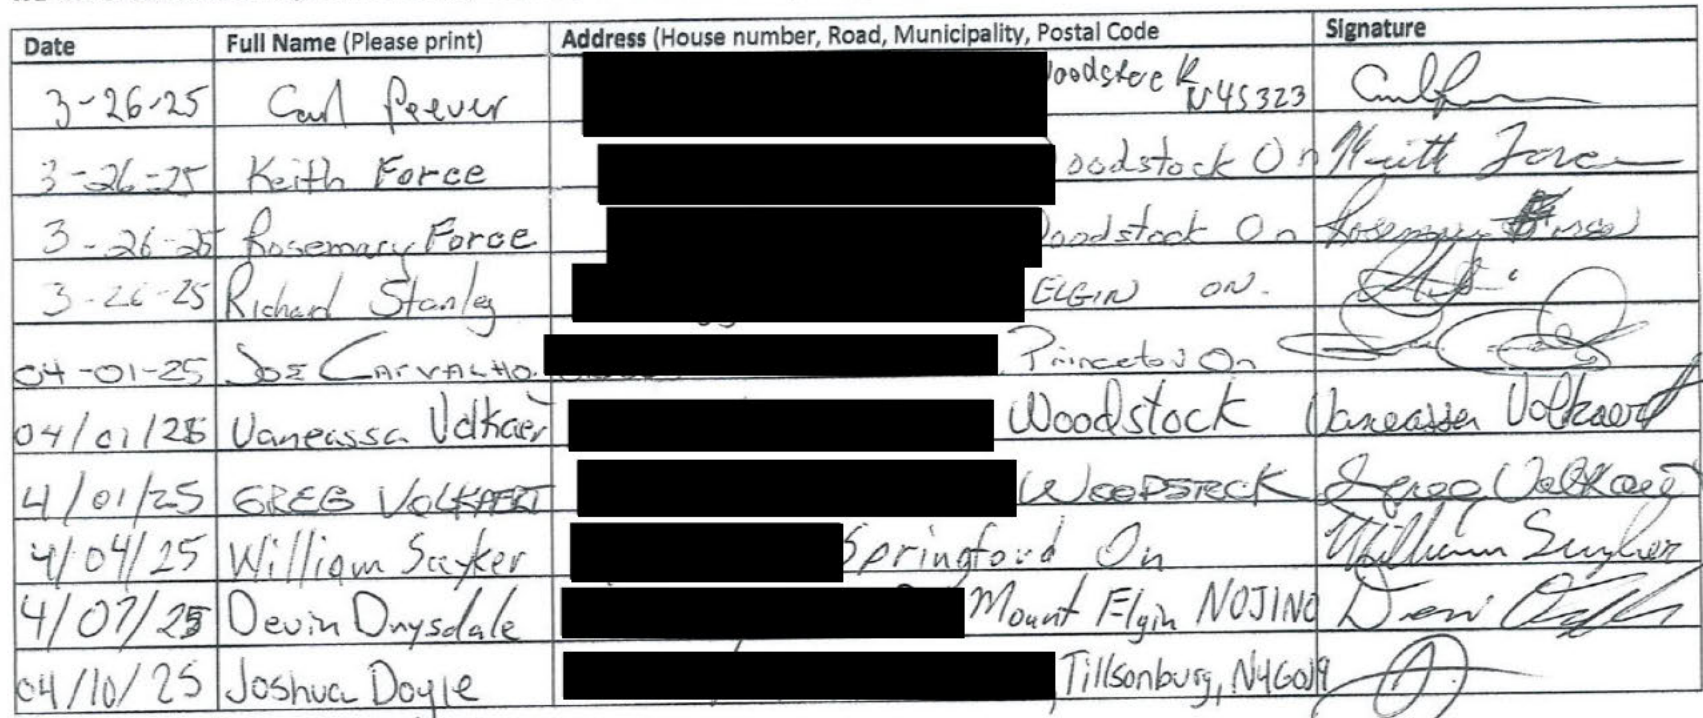 Date Full Name (Please print) Address (House number, Road, Municipality, Postal Code Signature
3-26-25 Carl Peever oodstock N4S323
3-26-25 Keith Force oodstock On Keith Force
3-26-25 Rosemary Force oodstock On Rosemary Force
3-26-25 Richard Stanley ELGIN ON.
04-01-25 JOE CARVALHO. Princeton On
04/01/25 Vaneassa Volkaer Woodstock Vaneassa Volkaert
4/01/25 GREG VOLKAERT WOODSTOCK Greg Volkaert
4/04/25 William Sayker Springford On William Suyker
4/07/25 Devin Drysdale Mount Elgin N0J1N0
04/10/25 Joshua Doyle Tillsonburg, N4G0J9